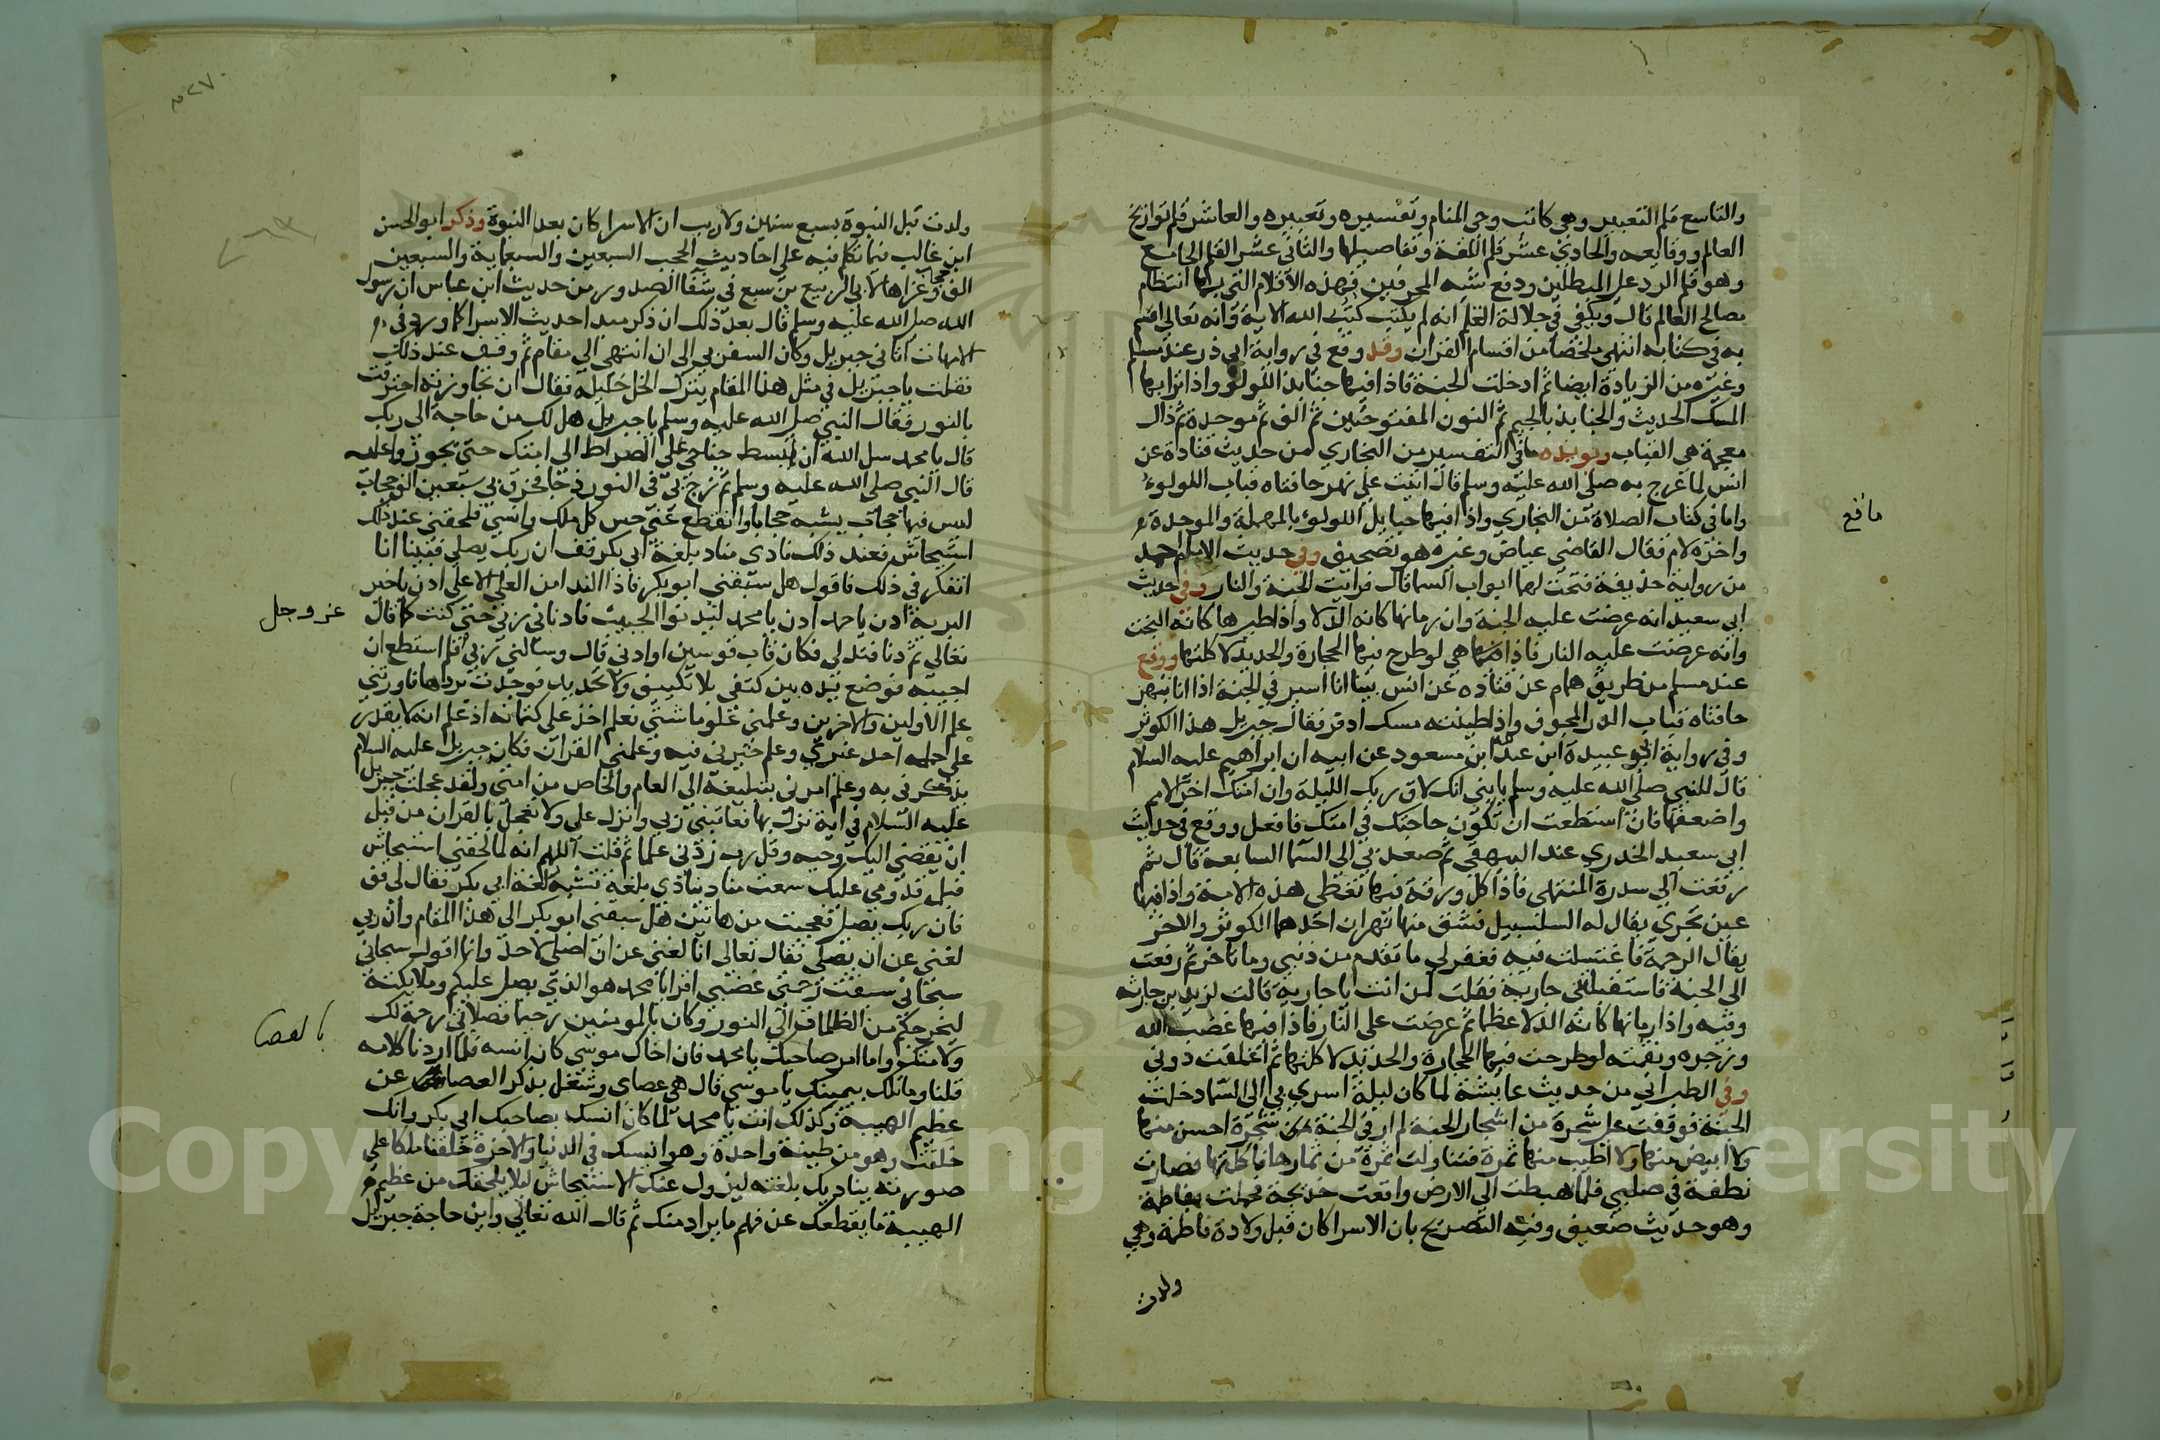 والتاسع قلم التعبير وهي كاتب وحي المنام وتفسيره وتعبيره والعاشر قلم تواريخ
العالم ووقايعه والحادي عشر قلم اللغة وتفاصيلها والثاني عشر القلم الجامع
وهو قلم الرد على المبطلين ودفع شبه المحرفين فهذه الاقلام التي بها انتظام
مصالح العالم قال ويكفي في جلالة القلم انه لم يكتب كتب الله الا به وانه تعالى اقسم
به في كتابه انتهى ملخصا من اقسام القران وقد وقع في رواية ابي ذر عند مسلم
وغيره من الزيادة ايضا ثم ادخلت الجنة فاذا فيها جنابذ اللولو واذا ترابها
المسك الحديث والجنابذ بالجيم ثم النون المفتوحتين ثم الف ثم موحدة ثم ذال
معجمة هي القباب ويويده ما في التفسير من البخاري من حديث قتادة عن
انس لما عرج به صلى الله عليه وسلم قال اتيت على نهر حافتاه قباب اللولوء
واما في كتاب الصلاة من البخاري واذا فيها حبايل اللولوء بالمهملة والموحدة
واخره لام فقال القاضي عياض وغيره هو تصحيف وفي حديث الامام احمد
من رواية حذيفة فتحت لهما ابواب السما قال فرايت الجنة والنار وفي حديث
ابي سعيد انه عرضت عليه الجنة وان رمانها كانه الدلا واذا طيرها كانه البخت
وانه عرضت عليه النار فاذا هي لو طرح فيها الحجارة والحديد لاكلتها ووقع
عند مسلم من طريق همام عن قتاده عن انس بينا انا اسير في الجنة اذا انا بنهر
حافتاه قباب الدر المجوف واذا طينته مسك اذفر فقال جبريل هذا الكوثر
وفي رواية ابي عبيدة ابن عبد الله ابن مسعود عن ابيه ان ابراهيم عليه السلام
قال للنبي صلى الله عليه وسلم يا بني انك لاق ربك الليلة وان امتك اخر الامم
واضعفها فان استطعت ان تكون حاجتك في امتك فافعل ووقع في حديث
ابي سعيد الخدري عند البيهقي ثم صعد بي الى السما السابعة قال ثم
رفعت الي سدرة المنتهى فاذا كل ورقة فيها تغطي هذه الامة واذا فيها
عين تجري يقال له السلسبيل فشق منها نهران احدهما الكوثر والاخر
يقال الرحمة فاغتسلت فيه فغفر لي ما تقدم من ذنبي وما تاخر ثم رفعت
الى الجنة فاستقبلتني جارية فقلت لمن انت يا جارية قالت لزيد بن حارثه
وفيه واذا رمانها كانه الدلا عظما ثم عرضت علي النار فاذا فيها غضب الله
وزجره ونقمته لو طرحت فيها الحجارة والحديد لاكلتها ثم اغلقت دوني
وفي الطبراني من حديث عايشة لما كان ليلة اسري بي الى السما دخلت
الجنة فوقفت على شجرة من اشجار الجنة لم ار في الجنة شجرة احسن منها
ولا ابيض منها ولا اطيب منها ثمرة فتناولت ثمرة من ثمارها فاكلتها فصارت
نطفة في صلبي فلما هبطت الى الارض واقعت خديجة فحملت بفاطمة
وهو حديث ضعيف وفيه التصريح بان الاسرا كان قبل ولادة فاطمة وهي
ولدت
ولدت قبل النبوة بسبع سنين ولا ريب ان الاسرا كان بعد النبوة وذكر ابو الحسن
ابن غالب فيما تكلم فيه على احاديث الحجب السبعين والسبعماية والسبعين
الف حجاب وعزاها لابي الربيع بن سبع في شفا الصدور من حديث ابن عباس ان رسول
الله صلى الله عليه وسلم قال بعد ذلك ان ذكر مبدا حديث الاسرا كما ورد في
الامهات اتاني جبريل وكان السفير بي الى ان انتهى الي مقام ثم وقف عند ذلك
فقلت يا جبريل في مثل هذا المقام يترك الخل خليله فقال ان تجاوزته احترقت
بالنور فقال النبي صلى الله عليه وسلم يا جبريل هل لك من حاجة الى ربك
قال يا محمد سل الله ان ابسط جناحي على الصراط الى امتك حتى تجوزوا عليه
قال النبي صلى الله عليه وسلم ثم زج بي في النور زجا فخرق بي سبعين الف حجاب
ليس فيها حجاب يشبه حجابا وانقطع عني حس كل ملك وانسي فلحقني عند ذلك
استيحاش فعند ذلك نادي مناد بلغة ابي بكر قف ان ربك يصلي فبينا انا
اتفكر في ذلك فاقول هل سبقني ابو بكر فاذا الندا من العلي الاعلى ادن يا خير
البرية ادن يا احمد ادن يا محمد ليدنو الحبيب فادناني ربي حتى كنت كما قال
عز وجل
تعالى ثم دنا فتدلى فكان قاب قوسين او ادنى قال وسالني ربي فلم استطع ان
اجيبه فوضع يده بين كتفي بلا تكييف ولا تحديد فوجدت بردها فاورثني
علم الاولين والاخرين وعلمني علوما شتى فعلم اخذ علي كتمانه اذ علم انه لا يقدر
على حمله احد غيري وعلم خيرني فيه وعلمني القران فكان جبريل عليه السلام
يذكرني به وعلم امرني بتبليغه الى العام والخاص من امتي ولقد عجلت جبريل
عليه السلام في اية نزل بها فعاتبني ربي وانزل علي ولا تعجل بالقران من قبل
ان يقضى اليك وحيه وقل رب زدني علما ثم قلت اللهم انه لما لحقني استيحاش
قبل قدومي عليك سمعت مناديا ينادي بلغة تشبه لغة ابي بكر فقال لي قف
فان ربك يصلي فعجبت من هاتين هل سبقني ابو بكر الى هذا المقام وان ربي
لغني عن ان يصلي فقال تعالى انا الغني عن ان اصلي لاحد وانما اقول سبحاني
سبحاني سبقت رحمتي غضبي اقرا يا محمد هو الذي يصلي عليكم وملايكته
ليخرجكم من الظلمات الي النور وكان بالمومنين رحيما فصلاتي رحمة لك
ولامتك واما امر صاحبك يا محمد فان اخاك موسى كان انسه بالعصا فلما اردنا كلامه
قلنا وما تلك بيمينك يا موسى قال هي عصاي وشغل بذكر العصا عن
عظيم الهيبة وكذلك انت يا محمد لما كان انسك بصاحبك ابي بكر وانك
خلقت وهو من طينة واحدة وهو انيسك في الدنيا والاخرة خلقنا ملكا على
صورته يناديك بلغته ليزول عنك الاستيحاش ليلا يلحقك من عظيم
الهيبة ما يقطعك عن فهم ما يراد منك ثم قال الله تعالى واين حاجة جبريل